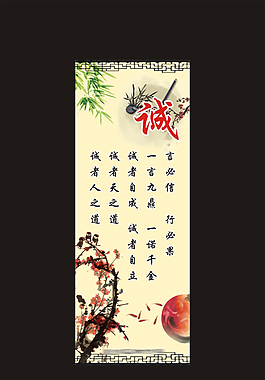 诚
言必信 行必果
一言九鼎 一诺千金
诚者自成 诚者自立
诚者天之道
诚者人之道